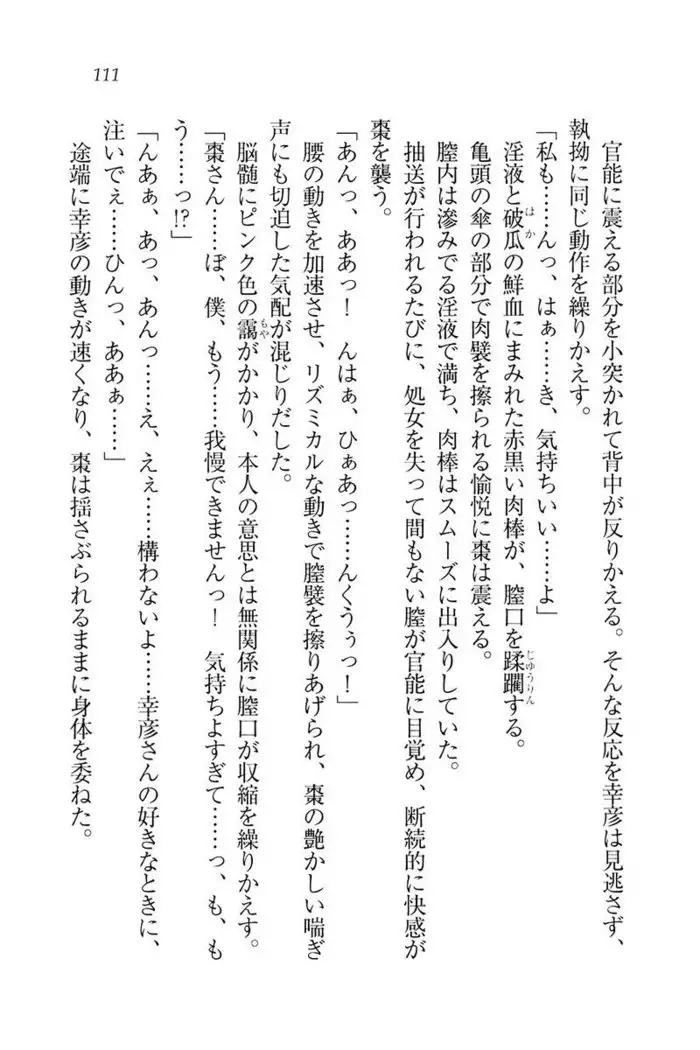 111
官能に震える部分を小突かれて背中が反りかえる。そんな反応を幸彦は見逃さず、
執拗に同じ動作を繰りかえす。
「私も……んっ、はぁ……き、気持ちいい……よ」
はか
じゅうりん
淫液と破瓜の鮮血にまみれた赤黒い肉棒が、膣口を蹂躙する。
亀頭の傘の部分で肉襞を擦られる愉悦に棗は震える。
膣内は滲みでる淫液で満ち、肉棒はスムーズに出入りしていた。
抽送が行われるたびに、処女を失って間もない膣が官能に目覚め、断続的に快感が
棗を襲う。
「あんっ、ああっ！　んはぁ、ひぁあっ……んくうぅっ！」
腰の動きを加速させ、リズミカルな動きで膣襞を擦りあげられ、棗の艶かしい喘ぎ
声にも切迫した気配が混じりだした。
もや
脳髄にピンク色の靄がかかり、本人の意思とは無関係に膣口が収縮を繰りかえす。
「棗さん……ぼ、僕、もう……我慢できませんっ！　気持ちよすぎて……っ、も、も
う……っ!?」
「んあぁ、あっ、あんっ……え、えぇ……構わないよ……幸彦さんの好きなときに、
注いでぇ……ひんっ、ああぁ……」
途端に幸彦の動きが速くなり、棗は揺さぶられるままに身体を委ねた。